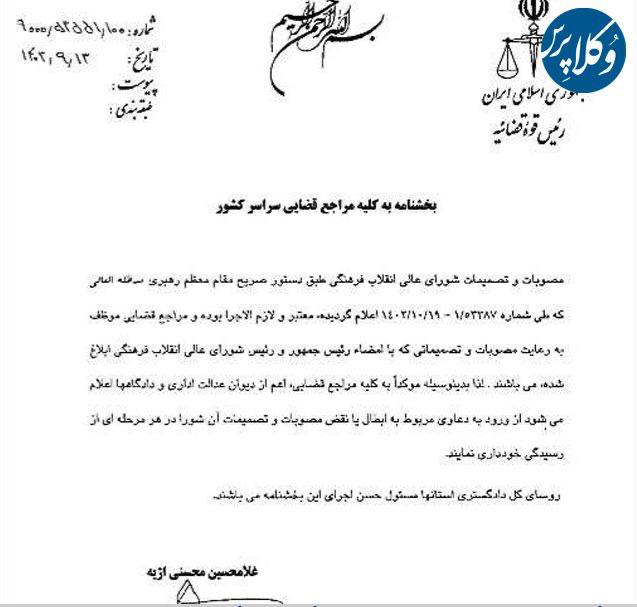 بسم الله الرحمن الرحیم
وکلاپرس
جمهوری اسلامی ایران
رئیس قوهٔ قضائیه
شماره: ۹۰۰۰/۵۲۵۵۱/۱۰۰
تاریخ: ۱۴۰۲/۹/۱۳
پیوست:
طبقه‌بندی:
بخشنامه به کلیه مراجع قضایی سراسر کشور
مصوبات و تصمیمات شورای عالی انقلاب فرهنگی طبق دستور صریح مقام معظم رهبری مدظله العالی
که طی شماره ۱/۵۳۳۸۷ - ۱۴۰۲/۱۰/۱۹ اعلام گردیده، معتبر و لازم الاجرا بوده و مراجع قضایی موظف
به رعایت مصوبات و تصمیماتی که با امضاء رئیس جمهور و رئیس شورای عالی انقلاب فرهنگی ابلاغ
شده، می باشند. لذا بدینوسیله موکداً به کلیه مراجع قضایی، اعم از دیوان عدالت اداری و دادگاهها اعلام
می شود از ورود به دعاوی مربوط به ابطال یا نقض مصوبات و تصمیمات آن شورا در هر مرحله ای از
رسیدگی خودداری نمایند.
روسای کل دادگستری استانها مسئول حسن اجرای این بخشنامه می باشند.
غلامحسین محسنی اژیه